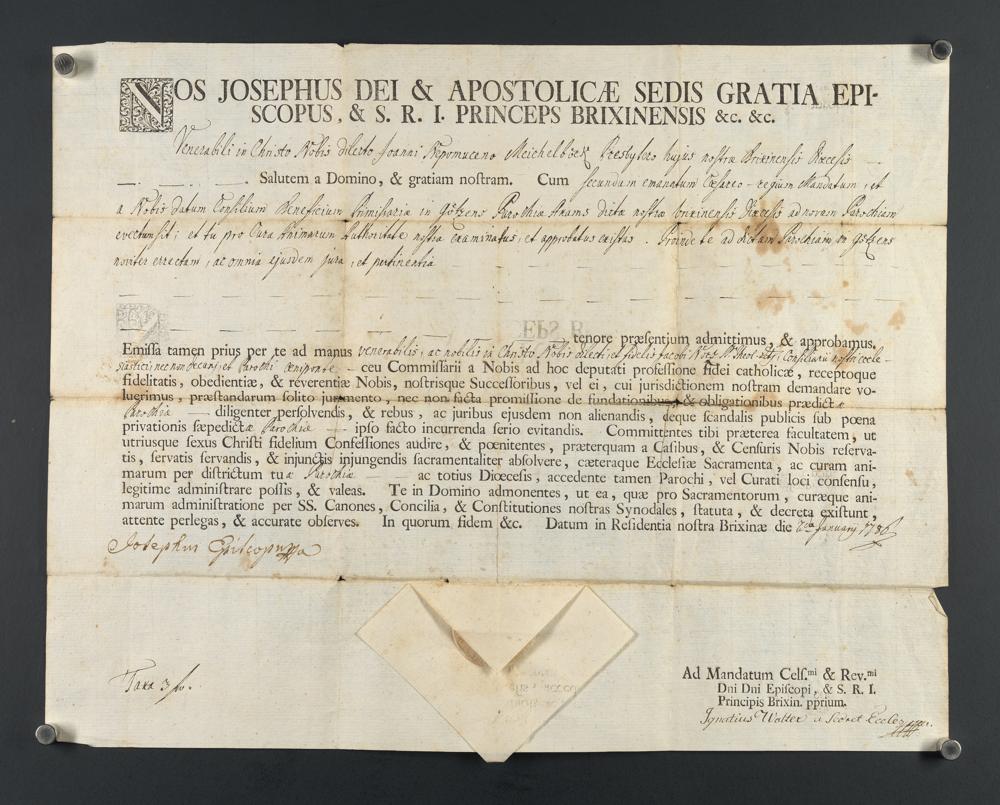 NOS JOSEPHUS DEI & APOSTOLICÆ SEDIS GRATIA EPI-
SCOPUS, & S. R. I. PRINCEPS BRIXINENSIS &c. &c.
Venerabili in Christo Nobis dilecto Joanni Nepomuceno Meichelböck Presbytero hujus nostræ Brixinensis Diœcesis
Salutem a Domino, & gratiam nostram. Cum secundum emanatum Cæsareo-regium Mandatum, et
a Nobis datum Consilium Beneficium Primissariæ in Götzens Parochiæ Axams dictæ nostræ brixinensis Diœcesis ad novam Parochiam
evectum sit; et tu pro Cura Animarum Authoritate nostra examinatus, et approbatus existas. Proinde te ad dictam Parochiam in Götzens
noviter erectam, ac omnia ejusdem jura, et pertinentia
tenore præsentium admittimus, & approbamus.
Emissa tamen prius per te ad manus venerabilis, ac nobilis in Christo Nobis dilecti, et fidelis Jacobi Consiliarii nostri eccle-
siastici, nec non Decani, et Parochi Œniponte ceu Commissarii a Nobis ad hoc deputati professione fidei catholicæ, receptoque
fidelitatis, obedientiæ, & reverentiæ Nobis, nostrisque Successoribus, vel ei, cui jurisdictionem nostram demandare vo-
luerimus, præstandarum solito juramento, nec non facta promissione de fundationibus, & obligationibus prædictæ
Parochiæ diligenter persolvendis, & rebus, ac juribus ejusdem non alienandis, deque scandalis publicis sub pœna
privationis sæpedictæ Parochiæ ipso facto incurrenda serio evitandis. Committentes tibi præterea facultatem, ut
utriusque sexus Christi fidelium Confessiones audire, & pœnitentes, præterquam a Casibus, & Censuris Nobis reserva-
tis, servatis servandis, & injunctis injungendis sacramentaliter absolvere, cæteraque Ecclesiæ Sacramenta, ac curam ani-
marum per districtum tuæ Parochiæ ac totius Diœcesis, accedente tamen Parochi, vel Curati loci consensu,
legitime administrare possis, & valeas. Te in Domino admonentes, ut ea, quæ pro Sacramentorum, curæque ani-
marum administratione per SS. Canones, Concilia, & Constitutiones nostras Synodales, statuta, & decreta existunt,
attente perlegas, & accurate observes. In quorum fidem &c. Datum in Residentia nostra Brixinæ die January 1786
Josephus Episcopus
Taxa 3 fl.
Ad Mandatum Cels.mi & Rev.mi
Dni Dni Episcopi, & S. R. I.
Principis Brixin. pprium.
Ignatius Wolter a Secret Eccles